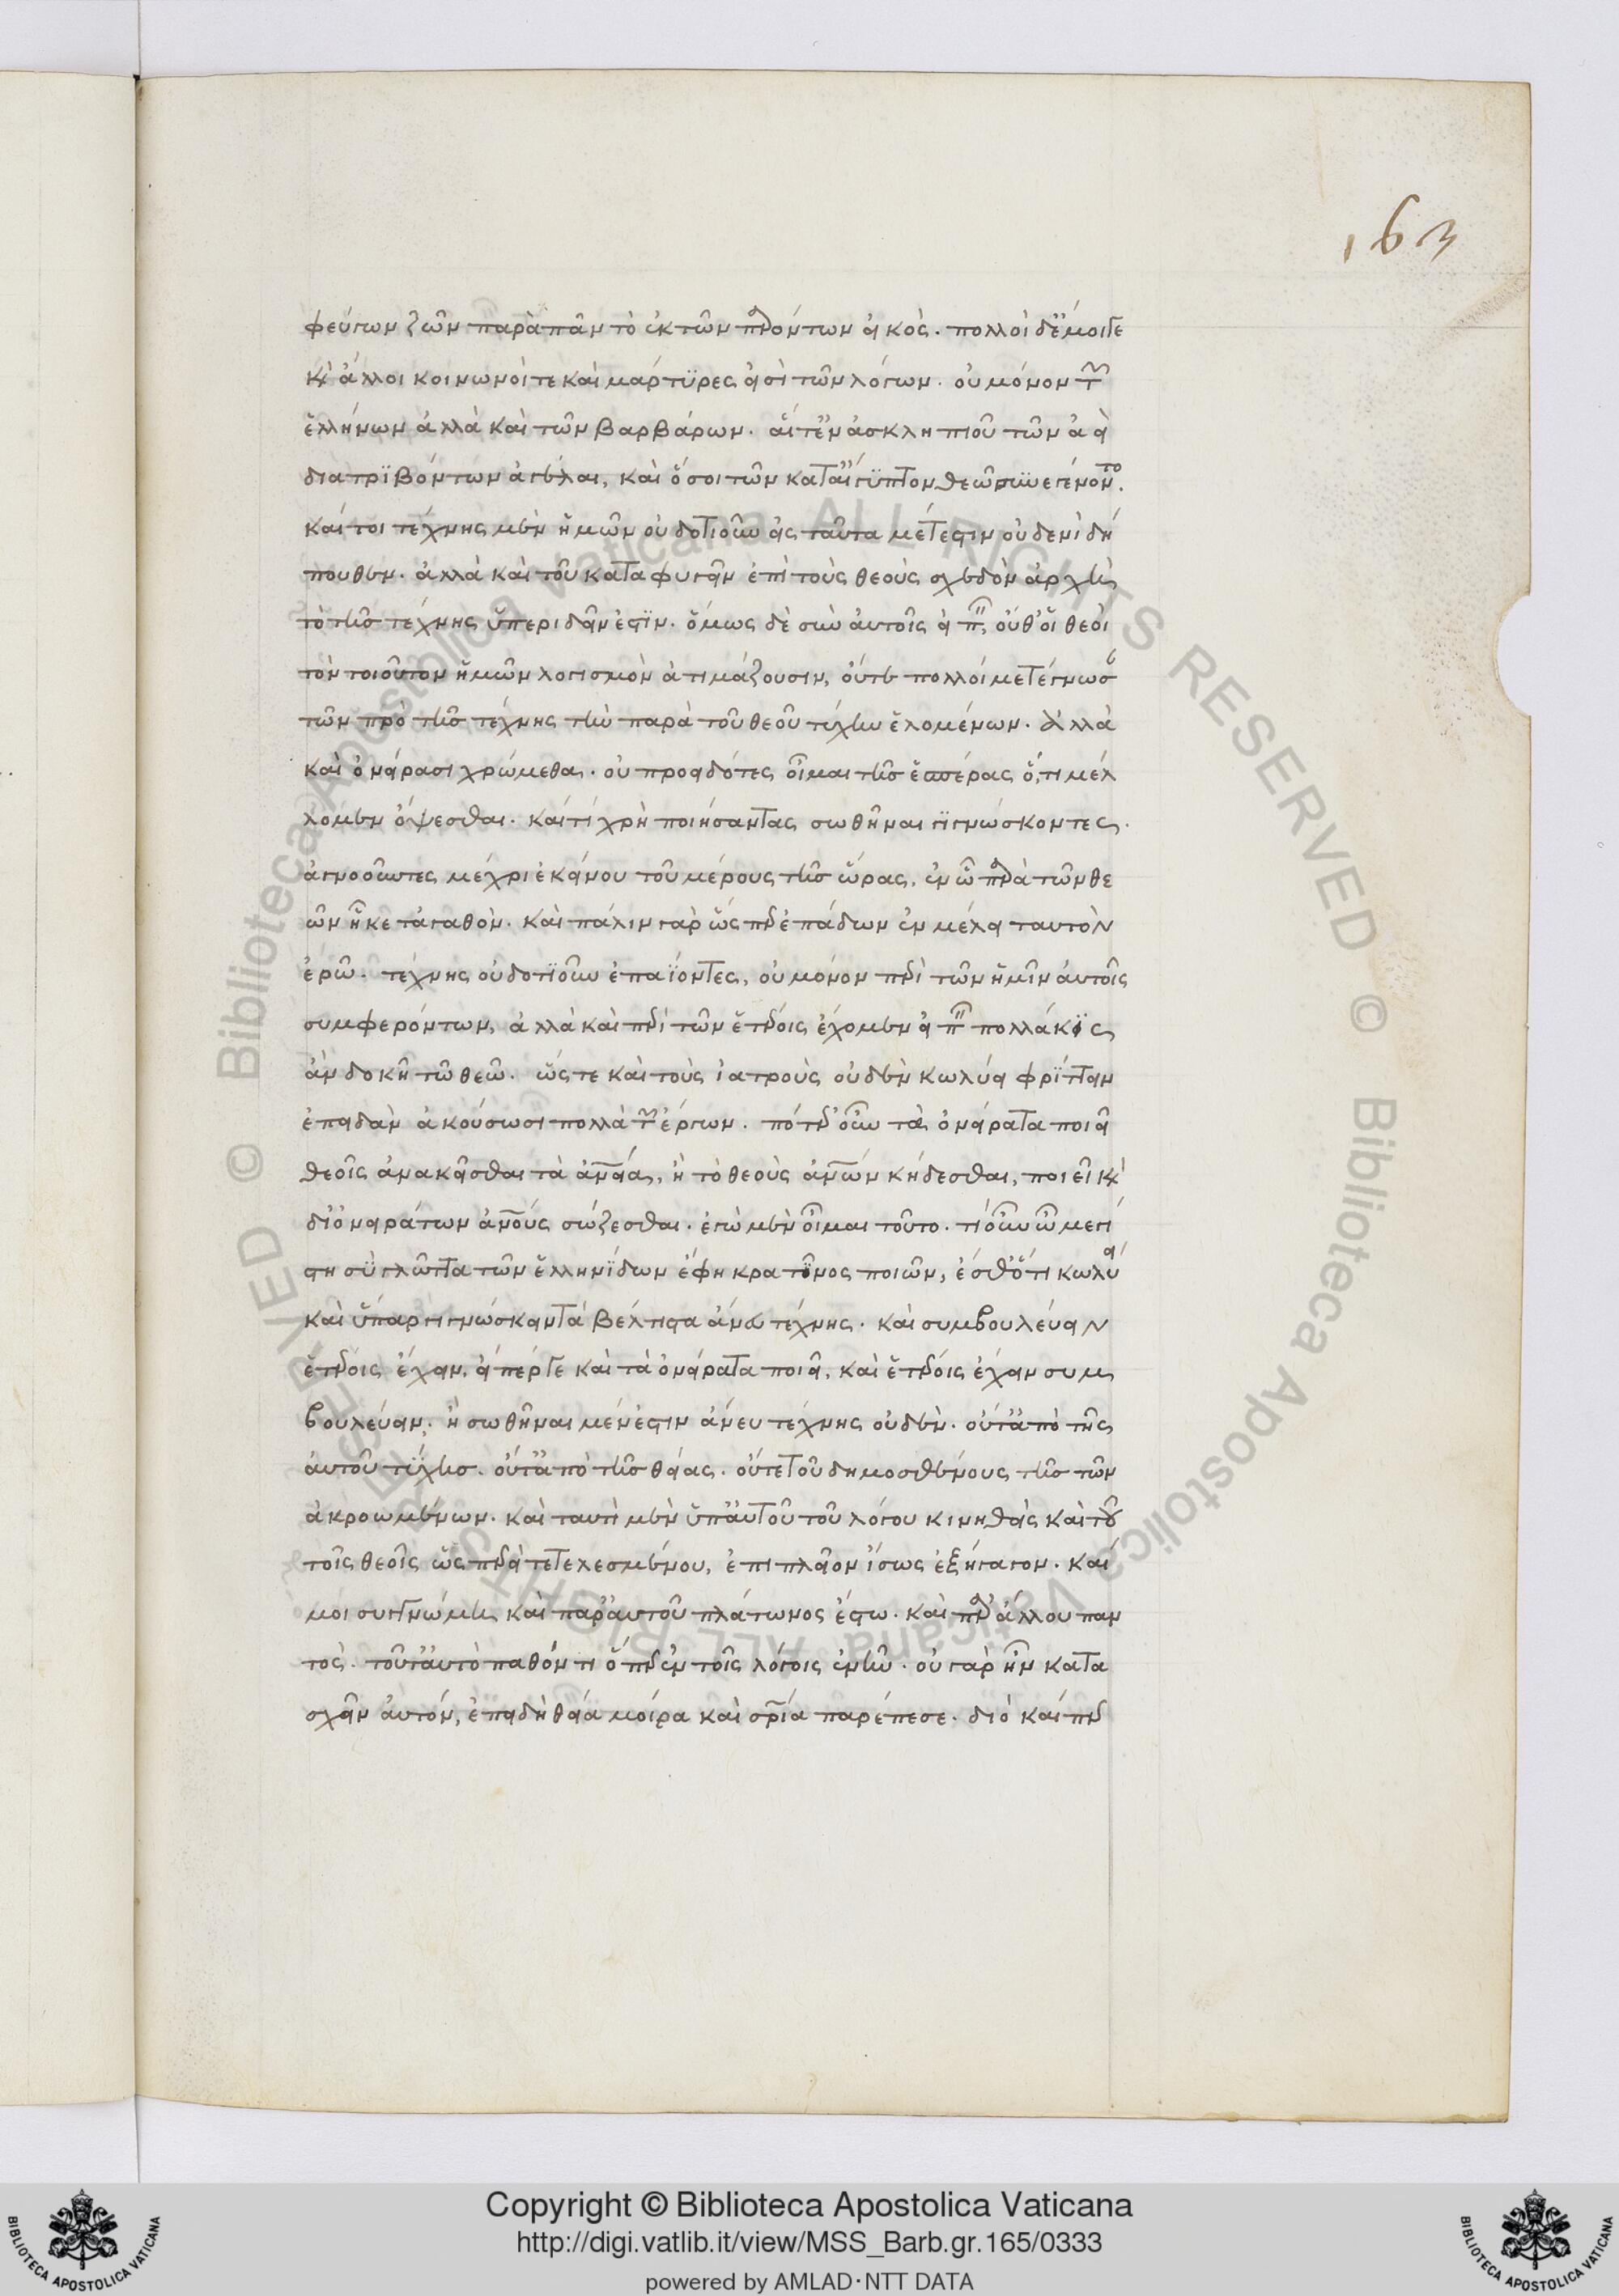 163
φεύγων ζῶν παράπαν τὸ ἐκ τῶν παρόντων εἰκός. πολλοὶ δ' ἔμοιγε
καὶ ἄλλοι κοινωνοί τε καὶ μάρτυρες εἰσὶ τῶν λόγων. οὐ μόνον τῶν
ἑλλήνων ἀλλὰ καὶ τῶν βαρβάρων. αἵ τ' ἐν ἀσκληπιοῦ τῶν ἀεὶ
διατριβόντων ἀγέλαι, καὶ ὅσοι τῶν κατ' αἴγυπτον θεῶ συνεγένοντο.
καί τοι τέχνης μὲν ἡμῶν οὐδοτιοῦν εἰς ταῦτα μέτεστιν οὐδενὶ δή
πουθεν. ἀλλὰ καὶ τοῦ καταφυγεῖν ἐπὶ τοὺς θεοὺς σχεδὸν ἀρχὴ
τὸ τῆς τέχνης ὑπεριδεῖν ἐστίν. ὅμως δὲ σὺν αὐτοῖς εἰπεῖν, οὔθ' οἱ θεοὶ
τὸν τοιοῦτον ἡμῶν λογισμὸν ἀτιμάζουσιν, οὔτε πολλοί μετέγνωσαν
τῶν πρὸ τῆς τέχνης τὴν παρὰ τοῦ θεοῦ τύχην ἑλομένων. ἀλλὰ
καὶ ὀνείρασι χρώμεθα. οὐ προειδότες οἶμαι τῆς ἑσπέρας ὅ,τι μέλ
λομεν ὄψεσθαι. καὶ τί χρὴ ποιήσαντας σωθῆναι γιγνώσκοντες.
ἀγνοοῦντες μέχρι ἐκείνου τοῦ μέρους τῆς ὥρας, ἐν ᾧ παρὰ τῶν θε
ῶν ἧκε τἀγαθόν. καὶ πάλιν γὰρ ὥς περ ἐπάδων ἐν μέλει ταυτὸν
ἐρῶ. τέχνης οὐδοτιοῦν ἐπαΐοντες, οὐ μόνον περὶ τῶν ἡμῖν αὐτοῖς
συμφερόντων, ἀλλὰ καὶ περὶ τῶν ἑτέροις ἔχομεν εἰπεῖν πολλάκις
ἂν δοκῆ τῶ θεῶ. ὥς τε καὶ τοὺς ἰατροὺς οὐδὲν κωλύει φρίττειν
ἐπειδὰν ἀκούσωσι πολλὰ τῶν ἔργων. πότερ' οὖν τὰ ὀνείρατα ποιεῖ
θεοῖς ἀνακεῖσθαι τὰ ἀνθρώπεια, ἢ τὸ θεοὺς ἀνθρώπων κήδεσθαι, ποιεῖ καὶ
δι' ὀνειράτων ἀνθρώπους σώζεσθαι. ἐγὼ μὲν οἶμαι τοῦτο. τί οὖν ὦ μεγί
στη σὺ γλῶττα τῶν ἑλληνίδων ἔφη κρατῖνος ποιῶν, ἔσθ' ὅτι κωλύει
καὶ ὕπαρ γιγνώσκειν τὰ βέλτιστα ἄνευ τέχνης. καὶ συμβουλεύειν
ἑτέροις ἔχειν, εἴπερ γε καὶ τὰ ὀνείρατα ποιεῖ, καὶ ἑτέροις ἔχειν συμ
βουλεύειν. ἢ σωθῆναι μέν ἐστιν ἄνευ τέχνης οὐδέν. οὔτ' ἀπὸ τῆς
αὐτοῦ τύχης. οὔτ' ἀπὸ τῆς θείας. οὔτε τοῦ δημοσθένους τῆς τῶν
ἀκροωμένων. καὶ ταυτὶ μὲν ὑπ' αὐτοῦ τοῦ λόγου κινηθεὶς καὶ τοῦ
τοῖς θεοῖς ὥς περεὶ τετελεσμένου, ἐπιπλεῖον ἴσως ἐξήγαγον. καί
μοι συγγνώμη καὶ παρ' αὐτοῦ πλάτωνος ἔστω. καὶ παρ' ἄλλου παν
τός. τοῦτ' αὐτὸ παθόντι ὅπερ ἐν τοῖς λόγοις ἐνῆν. οὐ γὰρ ἦν κατα
σχεῖν αὐτόν, ἐπειδὴ θεία μοίρα καὶ σωτηρία παρέπεσε. διό καίπερ
Copyright © Biblioteca Apostolica Vaticana
http://digi.vatlib.it/view/MSS_Barb.gr.165/0333
powered by AMLAD·NTT DATA